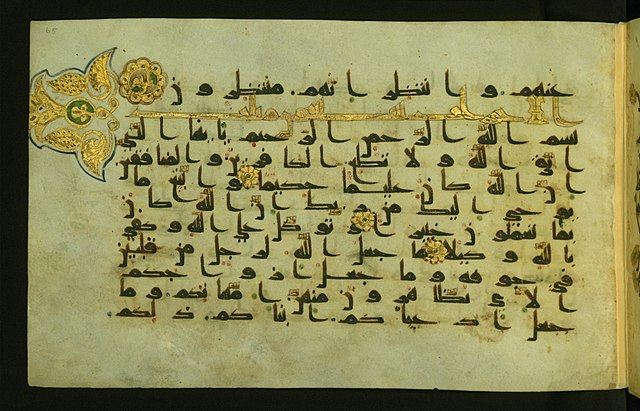 65
عنهم و انتظر انهم منتظرون
بسم الله الرحمن الرحيم يايها النبي
اتق الله و لا تطع الكفرين و المنفقين
ان الله كان عليما حكيما و اتبع ما
يوحى اليك من ربك ان الله كان
بما تعملون خبيرا و توكل على الله و كفى
بالله وكيلا ما جعل الله لرجل من قلبين
في جوفه و ما جعل ازوجكم
الئي تظهرون منهن امهتكم و ما
جعل ادعياكم ابناكم ذلكم